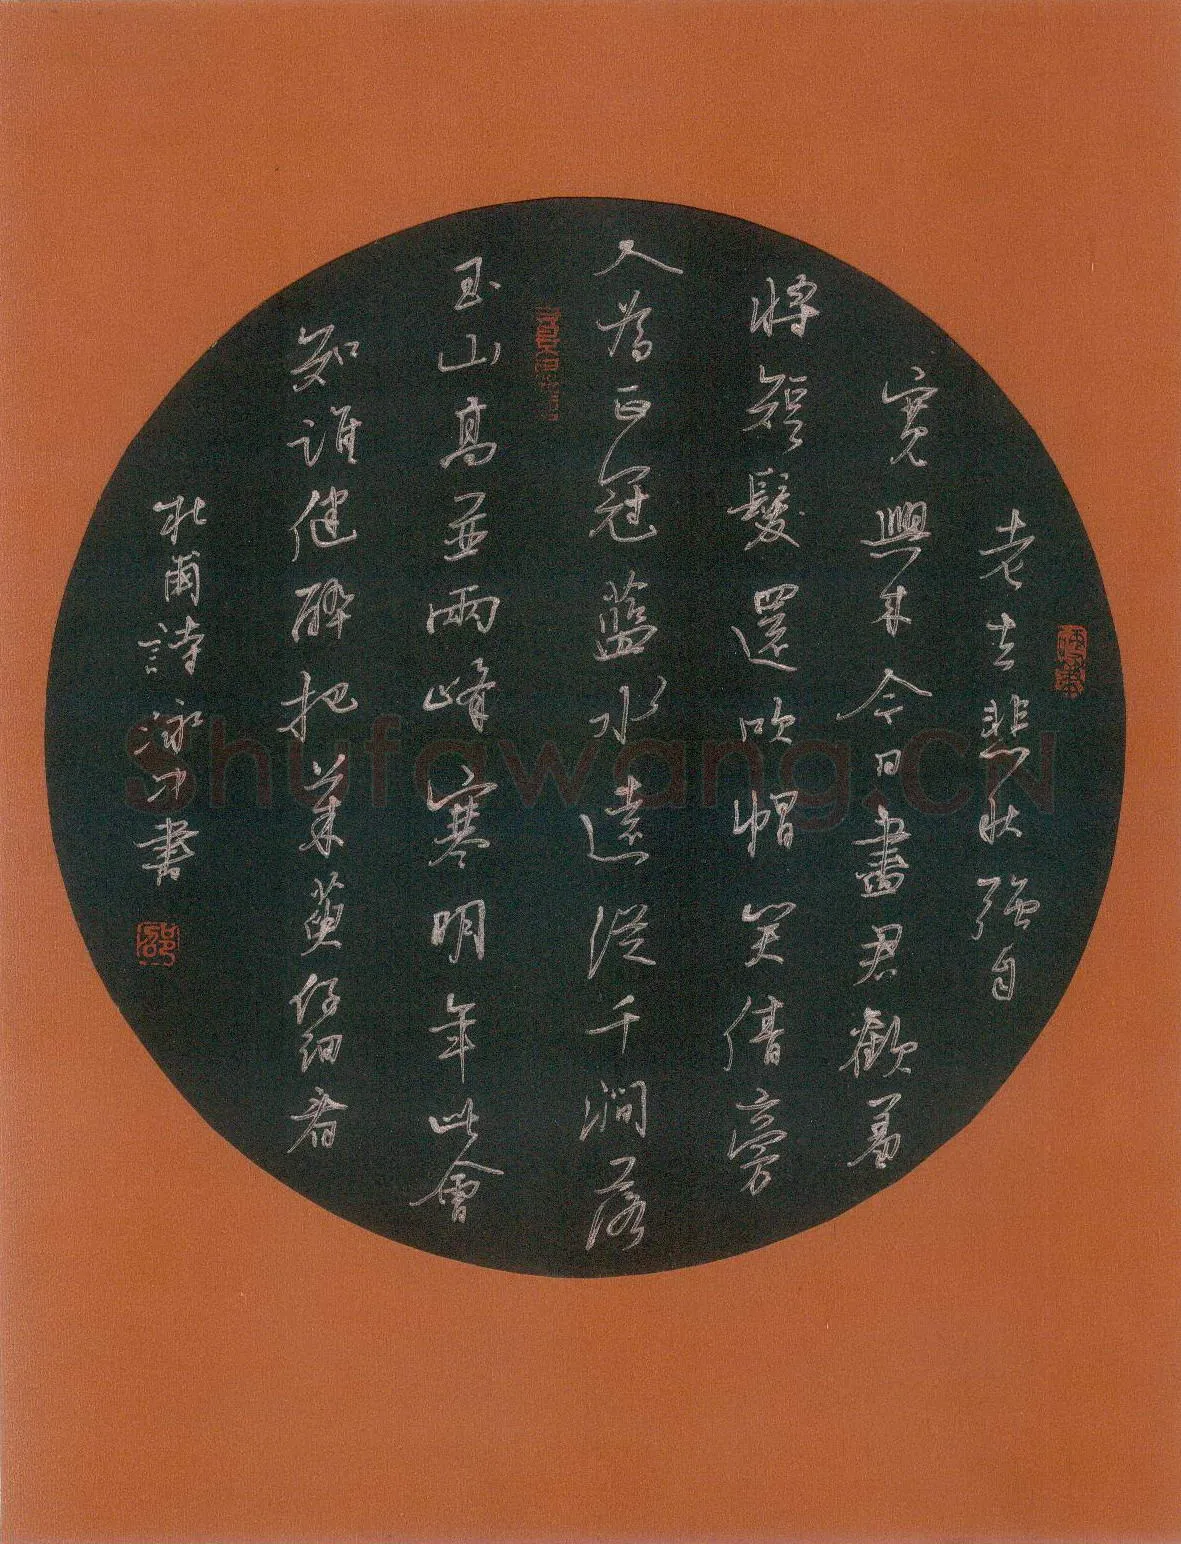 老去悲秋強自
寬興來今日盡君歡羞
將短髮還吹帽笑倩旁
人為正冠藍水遠從千澗落
玉山高並兩峰寒明年此會
知誰健醉把茱萸仔細看
杜甫詩 書
Shufawang.CN